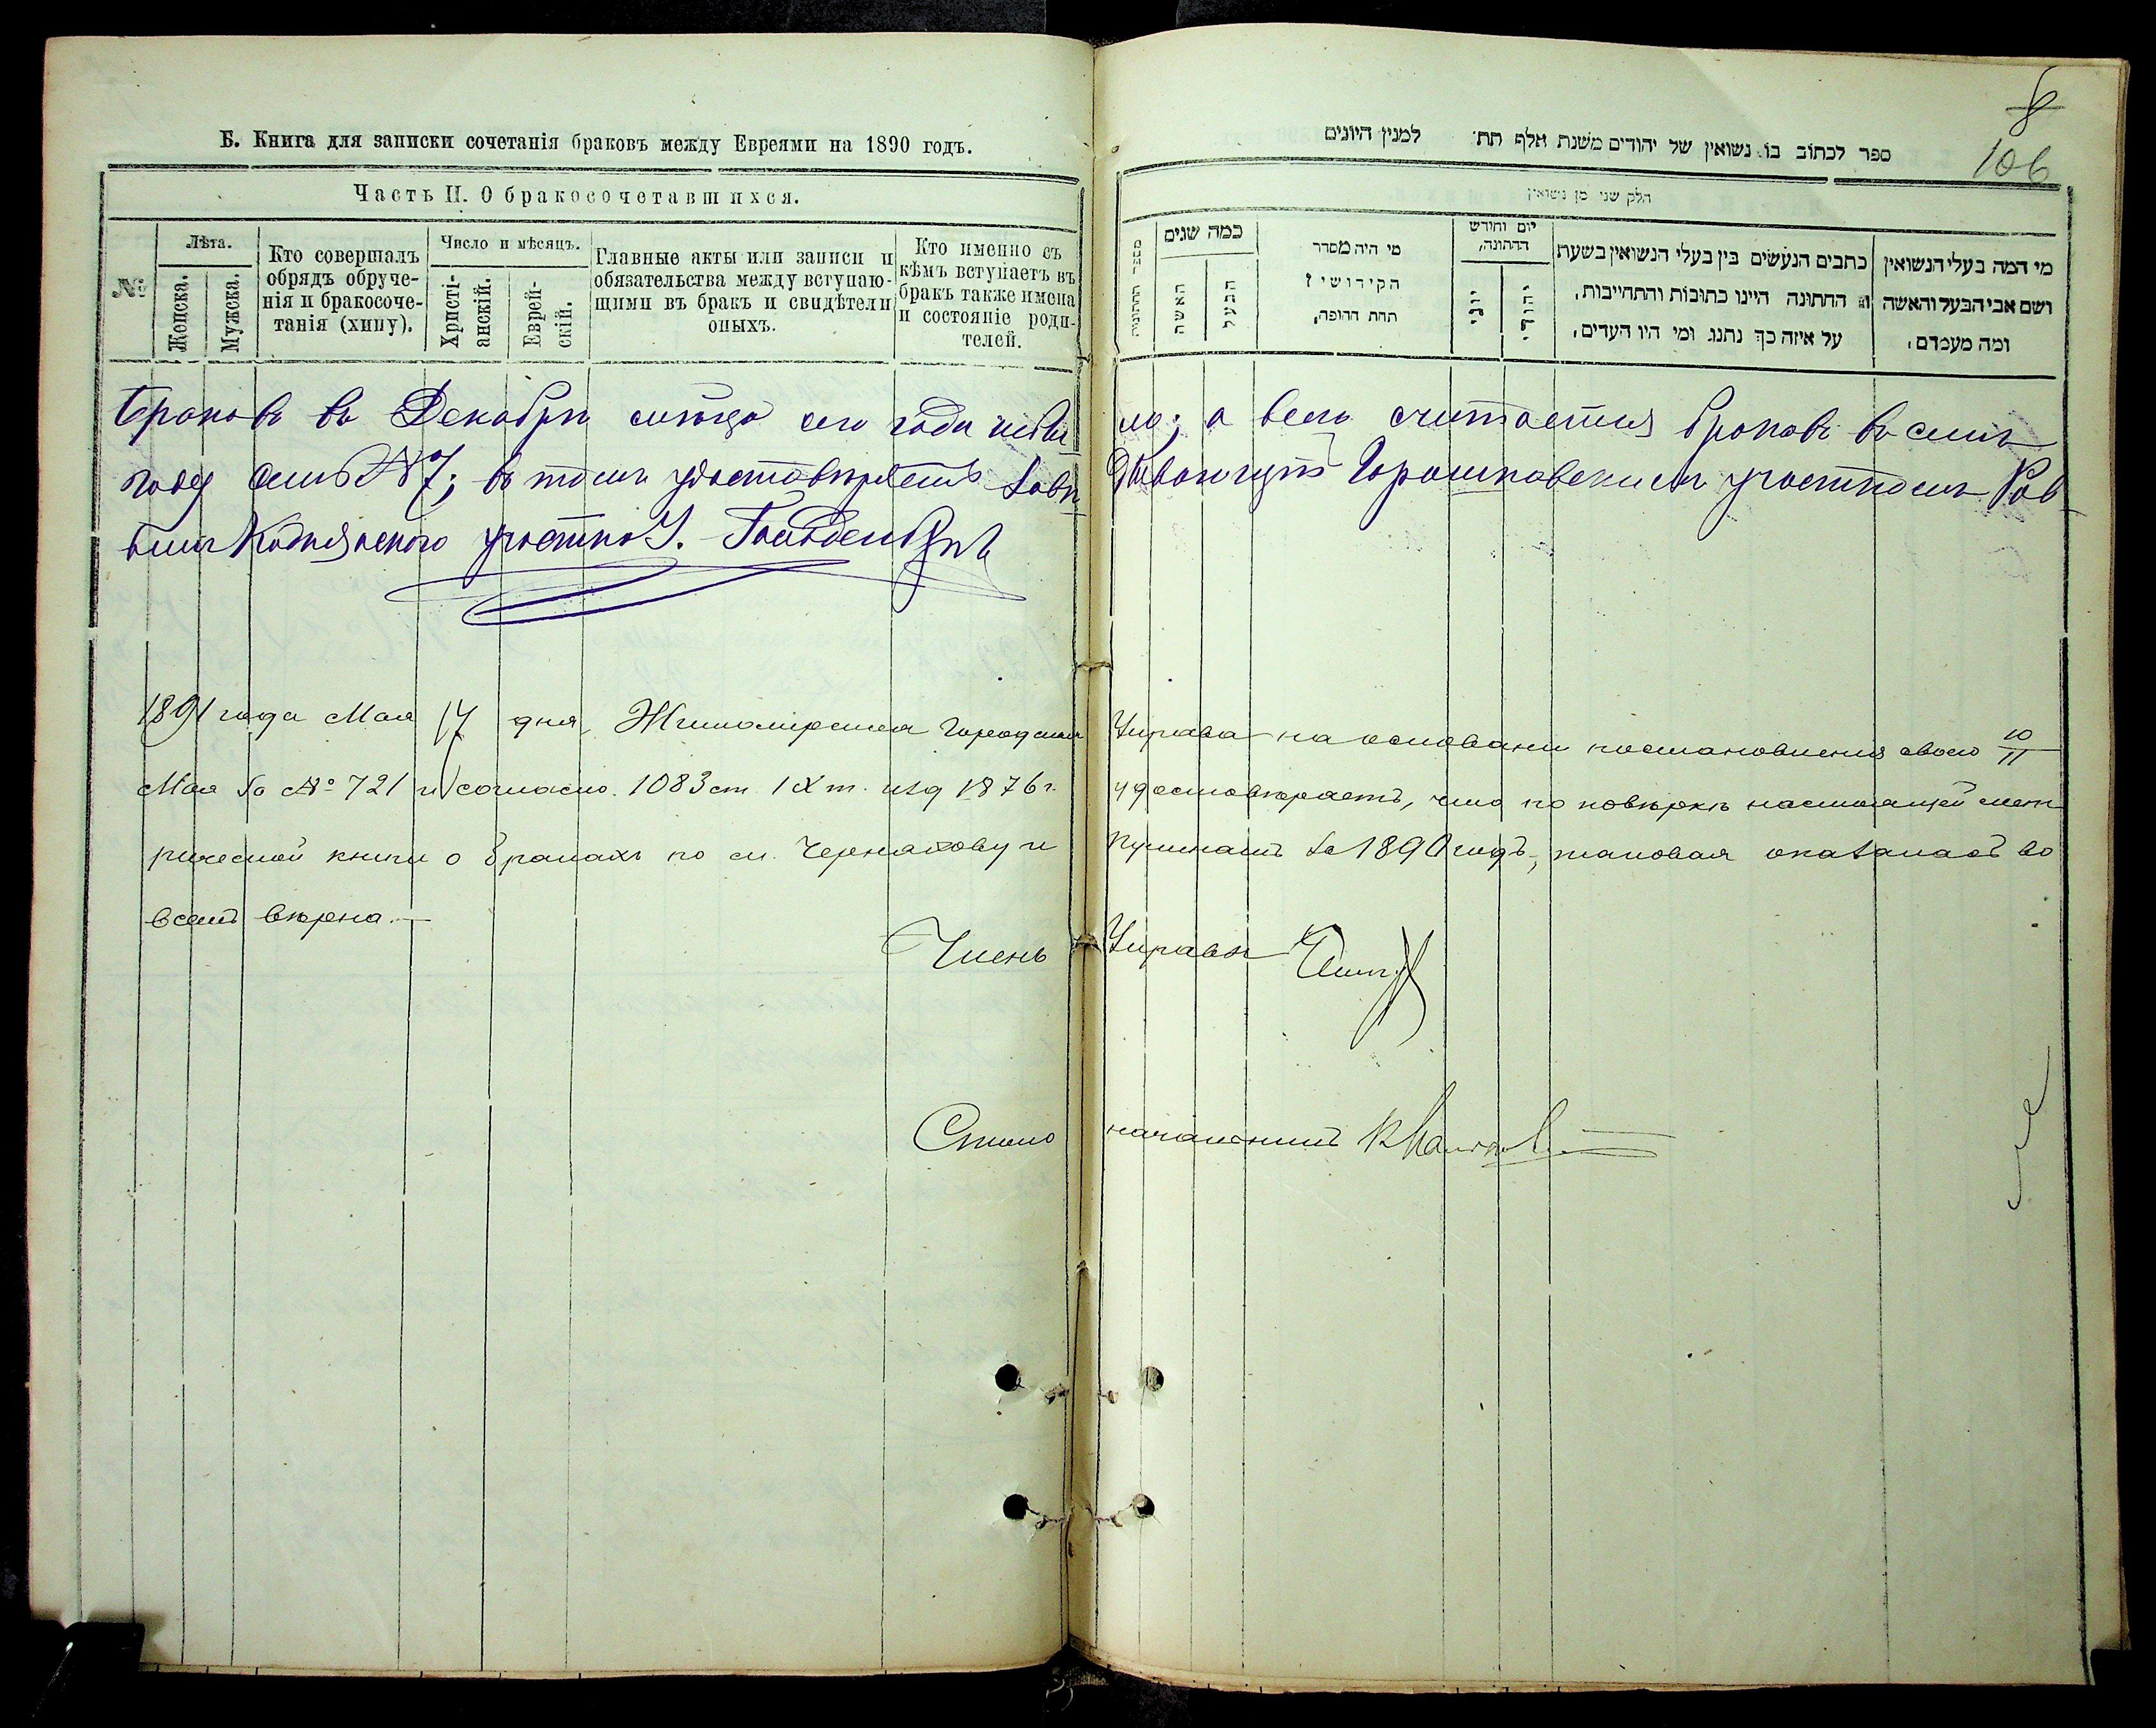 Б. Книга для записки сочетанія браковъ между Евреями на 1890 годъ.
Часть II. О бракосочетавшихся.
№
Лѣта.
Женска.
Мужска.
Кто совершалъ
обрядъ обруче-
нія и бракосоче-
танія (хипу).
Число и мѣсяцъ.
Христі-
анскій.
Еврей-
скій.
Главные акты или записи и
обязательства между вступаю-
щими въ бракъ и свидѣтели
оныхъ.
Кто именно съ
кѣмъ вступаетъ въ
бракъ также имена
и состояніе роди-
телей.
8
106
ספר לכתוב בו נשואין של יהודים משנת אלף תת׳ למנין היונים
חלק שני מן נשואין
מספר החתונות
כמה שנים
האשה
הבעל
מי היה מסדר
הקידושין
תחת החופה,
יום וחודש
החתונה,
יוני
יהודי
כתבים הנעשים בין בעלי הנשואין בשעת
החתונה היינו כתובות והתחייבות,
על איזה כך נתנו ומי היו העדים,
מי המה בעלי הנשואין
ושם אבי הבעל והאשה
ומה מעמדם,
Браковъ въ Декабрѣ мѣсяцѣ сего года небы-
ло; а всего считается браковъ въ семъ
году семь № 7; въ томъ удостовѣряетъ завѣ-
дывающій Горошковскимъ участкомъ Рав-
винъ Коднянскаго участка
1891 года Мая 17 дня, Житомирская Городская Управа на основаніи постановленія своего 10/11
Мая за № 721 и согласно 1083 ст. IX т. изд 1876 г. удостовѣряетъ, что по повѣркѣ настоящей мет
рической книги о бракахъ по м. Черняхову и Пулинамъ за 1890 годъ, таковая оказалась во
всемъ вѣрна.—
Членъ Управы
Столоначальникъ